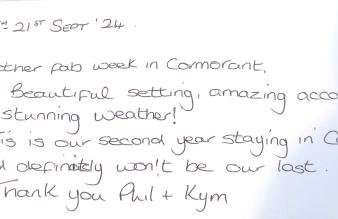 21ST SEPT '24.
other fab week in Cormorant,
Beautiful setting, amazing acco
stunning weather!
is is our second year staying in C
definitely won't be our last.
Thank you Phil + Kym